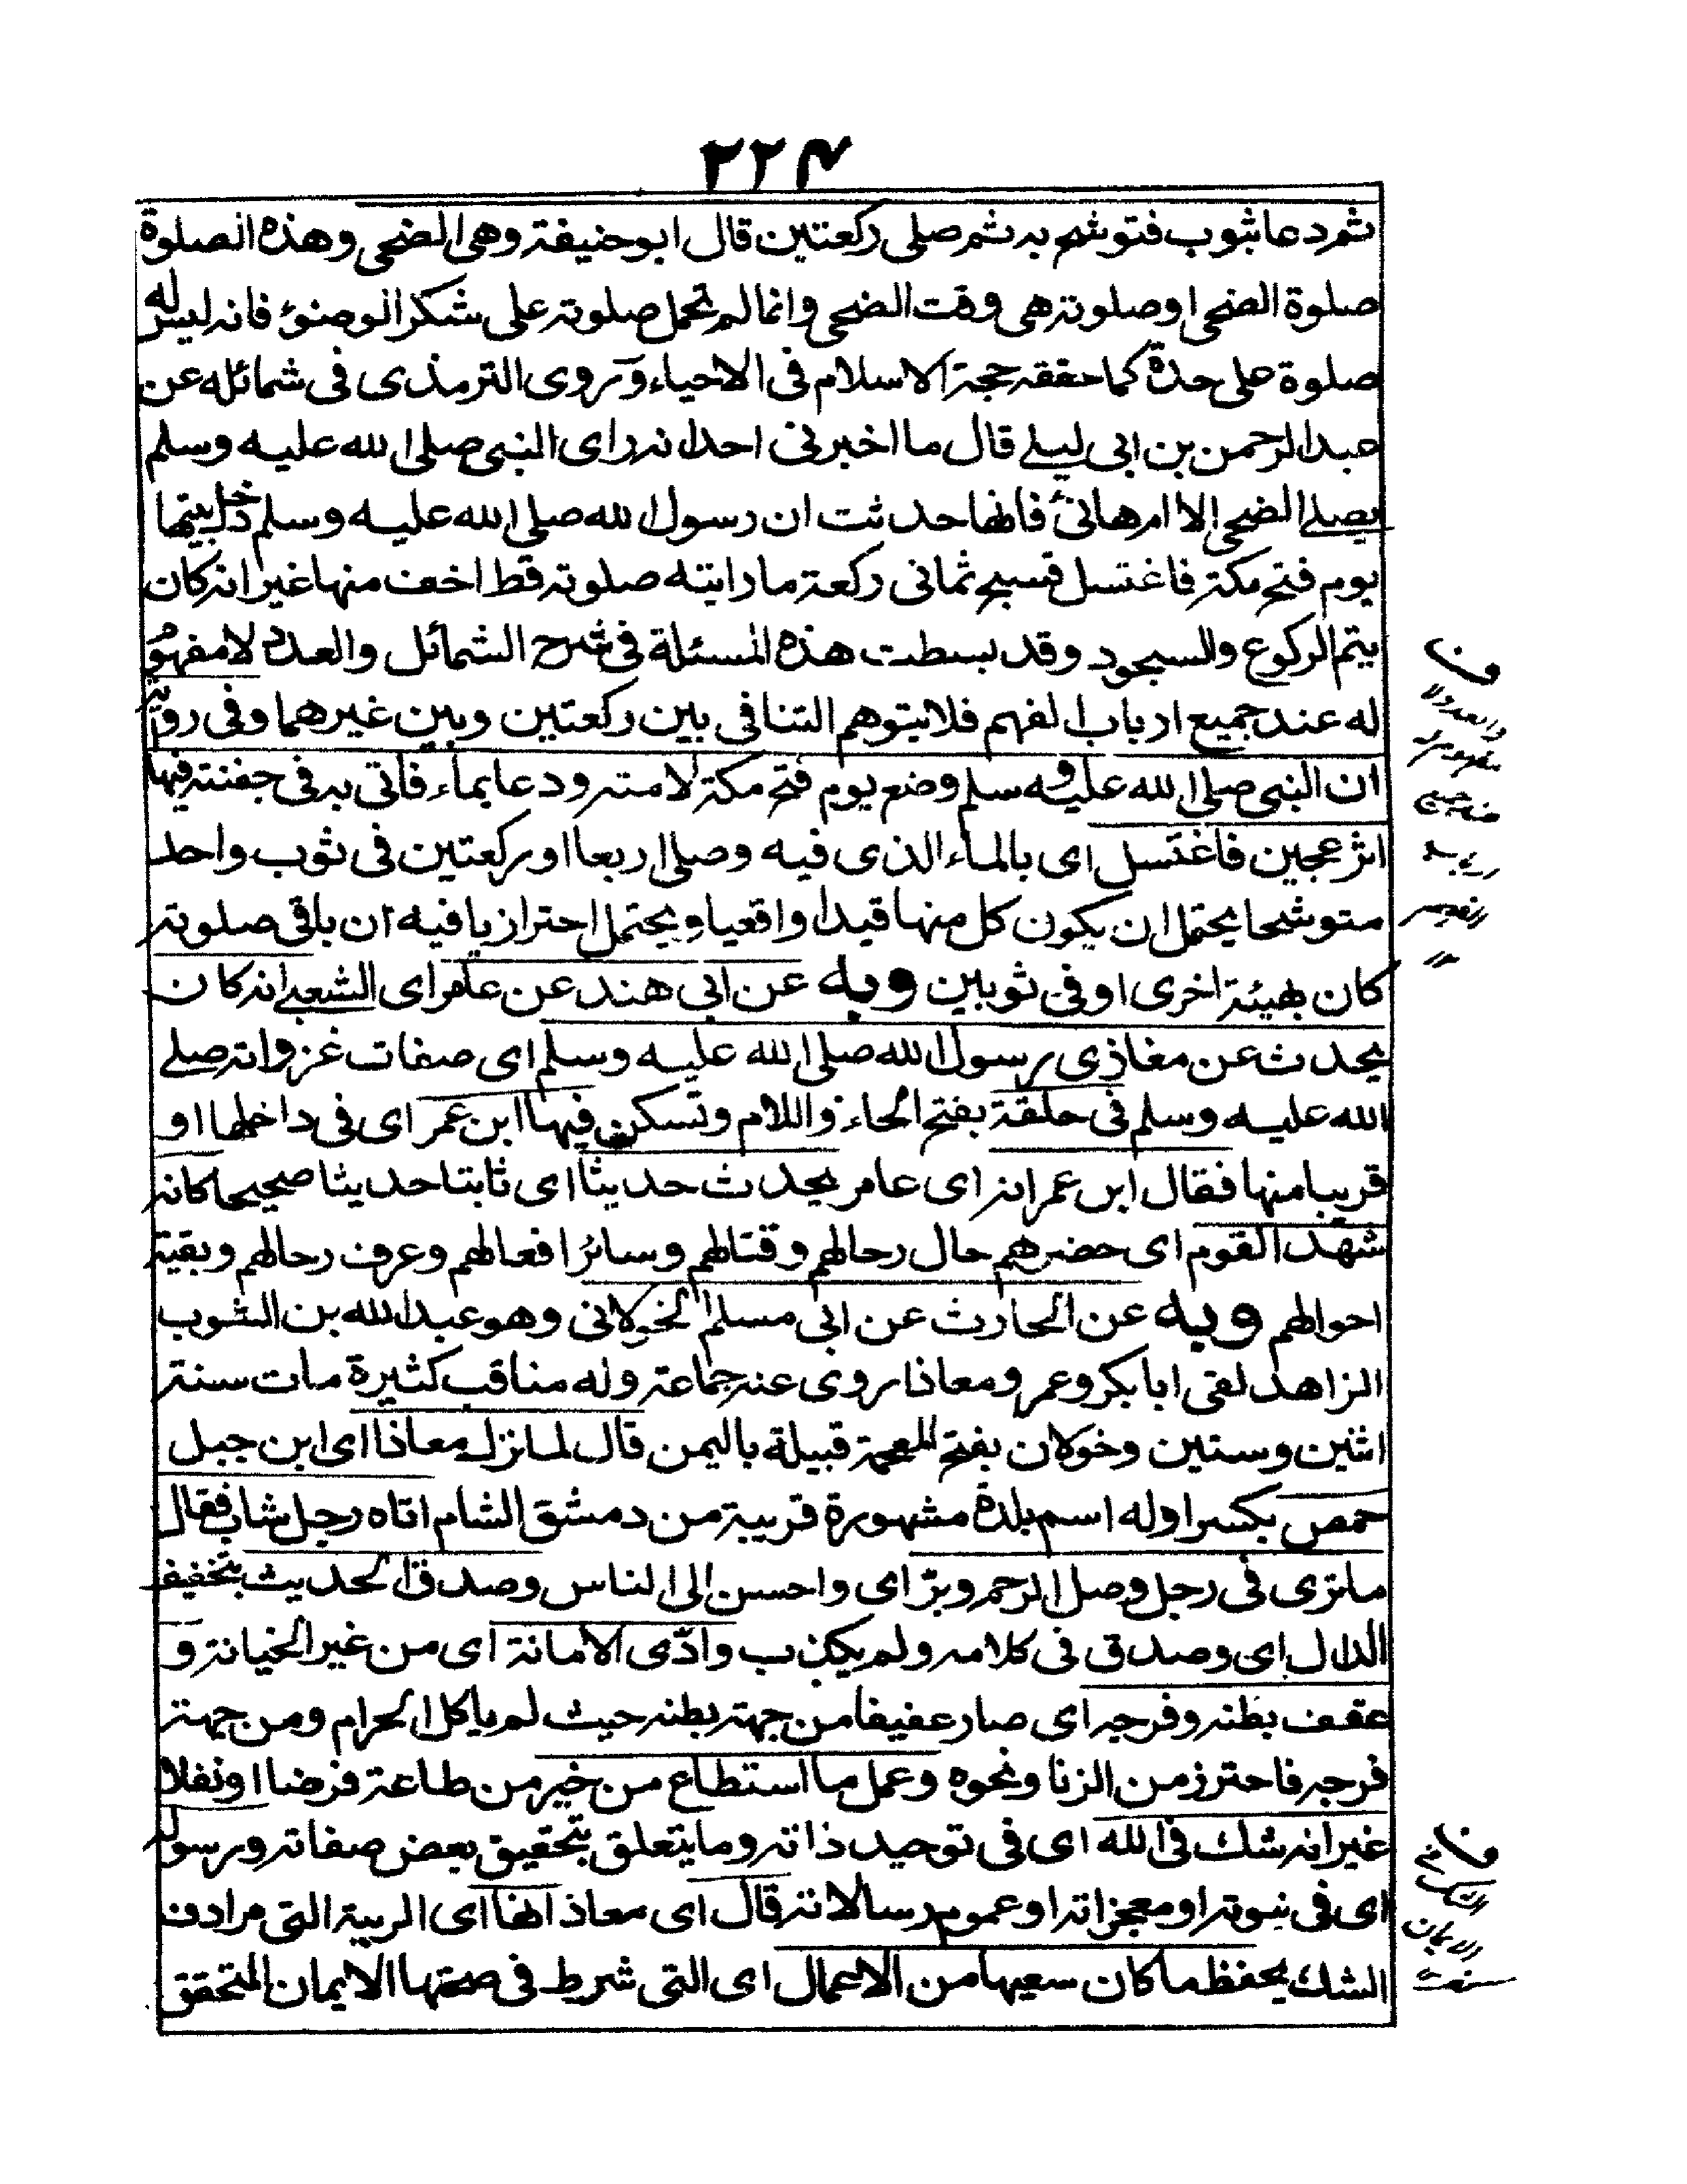 ٢٢٤
ثم دعا بثوب فتوشح به ثم صلى ركعتين قال ابو حنيفة وهى الضحى وهذه الصلوة
صلوة الضحى او صلوته هى وقت الضحى وانما لم تحمل صلوته على شكر الوضوء فانه ليس له
صلوة على حدة كما حققه حجة الاسلام فى الاحياء وروى الترمذى فى شمائله عن
عبد الرحمن بن ابى ليلے قال ما اخبرنى احد انه راى النبى صلى الله عليه وسلم
يصلے الضحى الا ام هانئ فانها حدثت ان رسول الله صلى الله عليه وسلم دخل بيتها
يوم فتح مكة فاغتسل فسبح ثمانى ركعة ما رايته صلوته قط اخف منها غير انه كان
يتم الركوع والسجود وقد بسطت هذه المسئلة فى شرح الشمائل والعدد لا مفهوم
له عند جميع ارباب الفهم فلا يتوهم التنافى بين ركعتين وبين غيرهما وفى رواية
ان النبى صلى الله عليه وسلم وضع يوم فتح مكة لامته ودعا بماء فأتى به فى جفنة فيها
اثر عجين فاغتسل اى بالماء الذى فيه وصلى اربعا او ركعتين فى ثوب واحد
متوشحا يحتمل ان يكون كل منها قيدا واقعيا ويحتمل احترازيا فيه ان باقى صلوته
كان بهيئة اخرى او فى ثوبين وبه عن ابى هند عن عامر اى الشعبے انه كان
يحدث عن مغازى رسول الله صلى الله عليه وسلم اى صفات غزواته صلے
الله عليه وسلم فى حلقة بفتح الحاء واللام وتسكن فيها ابن عمر اى فى داخلها او
قريبا منها فقال ابن عمر انه اى عامر يحدث حديثا اى ثابتا حديثا صحيحا كانه
شهد القوم اى حضرهم حال رحالهم وقتالهم وسائر افعالهم وعرف رحالهم وبقية
احوالهم وبه عن الحارث عن ابى مسلم الخولانى وهو عبد الله بن الثوب
الزاهد لقى ابا بكر وعمر ومعاذا روى عنه جماعة وله مناقب كثيرة مات سنة
اثنين وستين وخولان بفتح المعجمة قبيلة باليمن قال لما نزل معاذا اى ابن جبل
حمص بكسر اوله اسم بلدة مشهورة قريبة من دمشق الشام اتاه رجل شاب فقال
ما ترى فى رجل وصل الرحم وبرّ اى واحسن الى الناس وصدق الحديث بتخفيف
الدال اى وصدق فى كلامه ولم يكذب وادّى الامانة اى من غير الخيانة و
عفف بطنه وفرجه اى صار عفيفا من جهة بطنه حيث لم ياكل الحرام ومن جهة
فرجه فاحترز من الزنا ونحوه وعمل ما استطاع من خير من طاعة فرضا او نفلا
غير انه شك فى الله اى فى توحيد ذاته وما يتعلق بتحقيق بعض صفاته ورسوله
اى فى نبوته او معجزاته او عموم رسالاته قال اى معاذ انها اى الريبة التى مرادف
الشك يحفظ ما كان سعيها من الاعمال اى التى شرط فى صحتها الايمان المتحقق